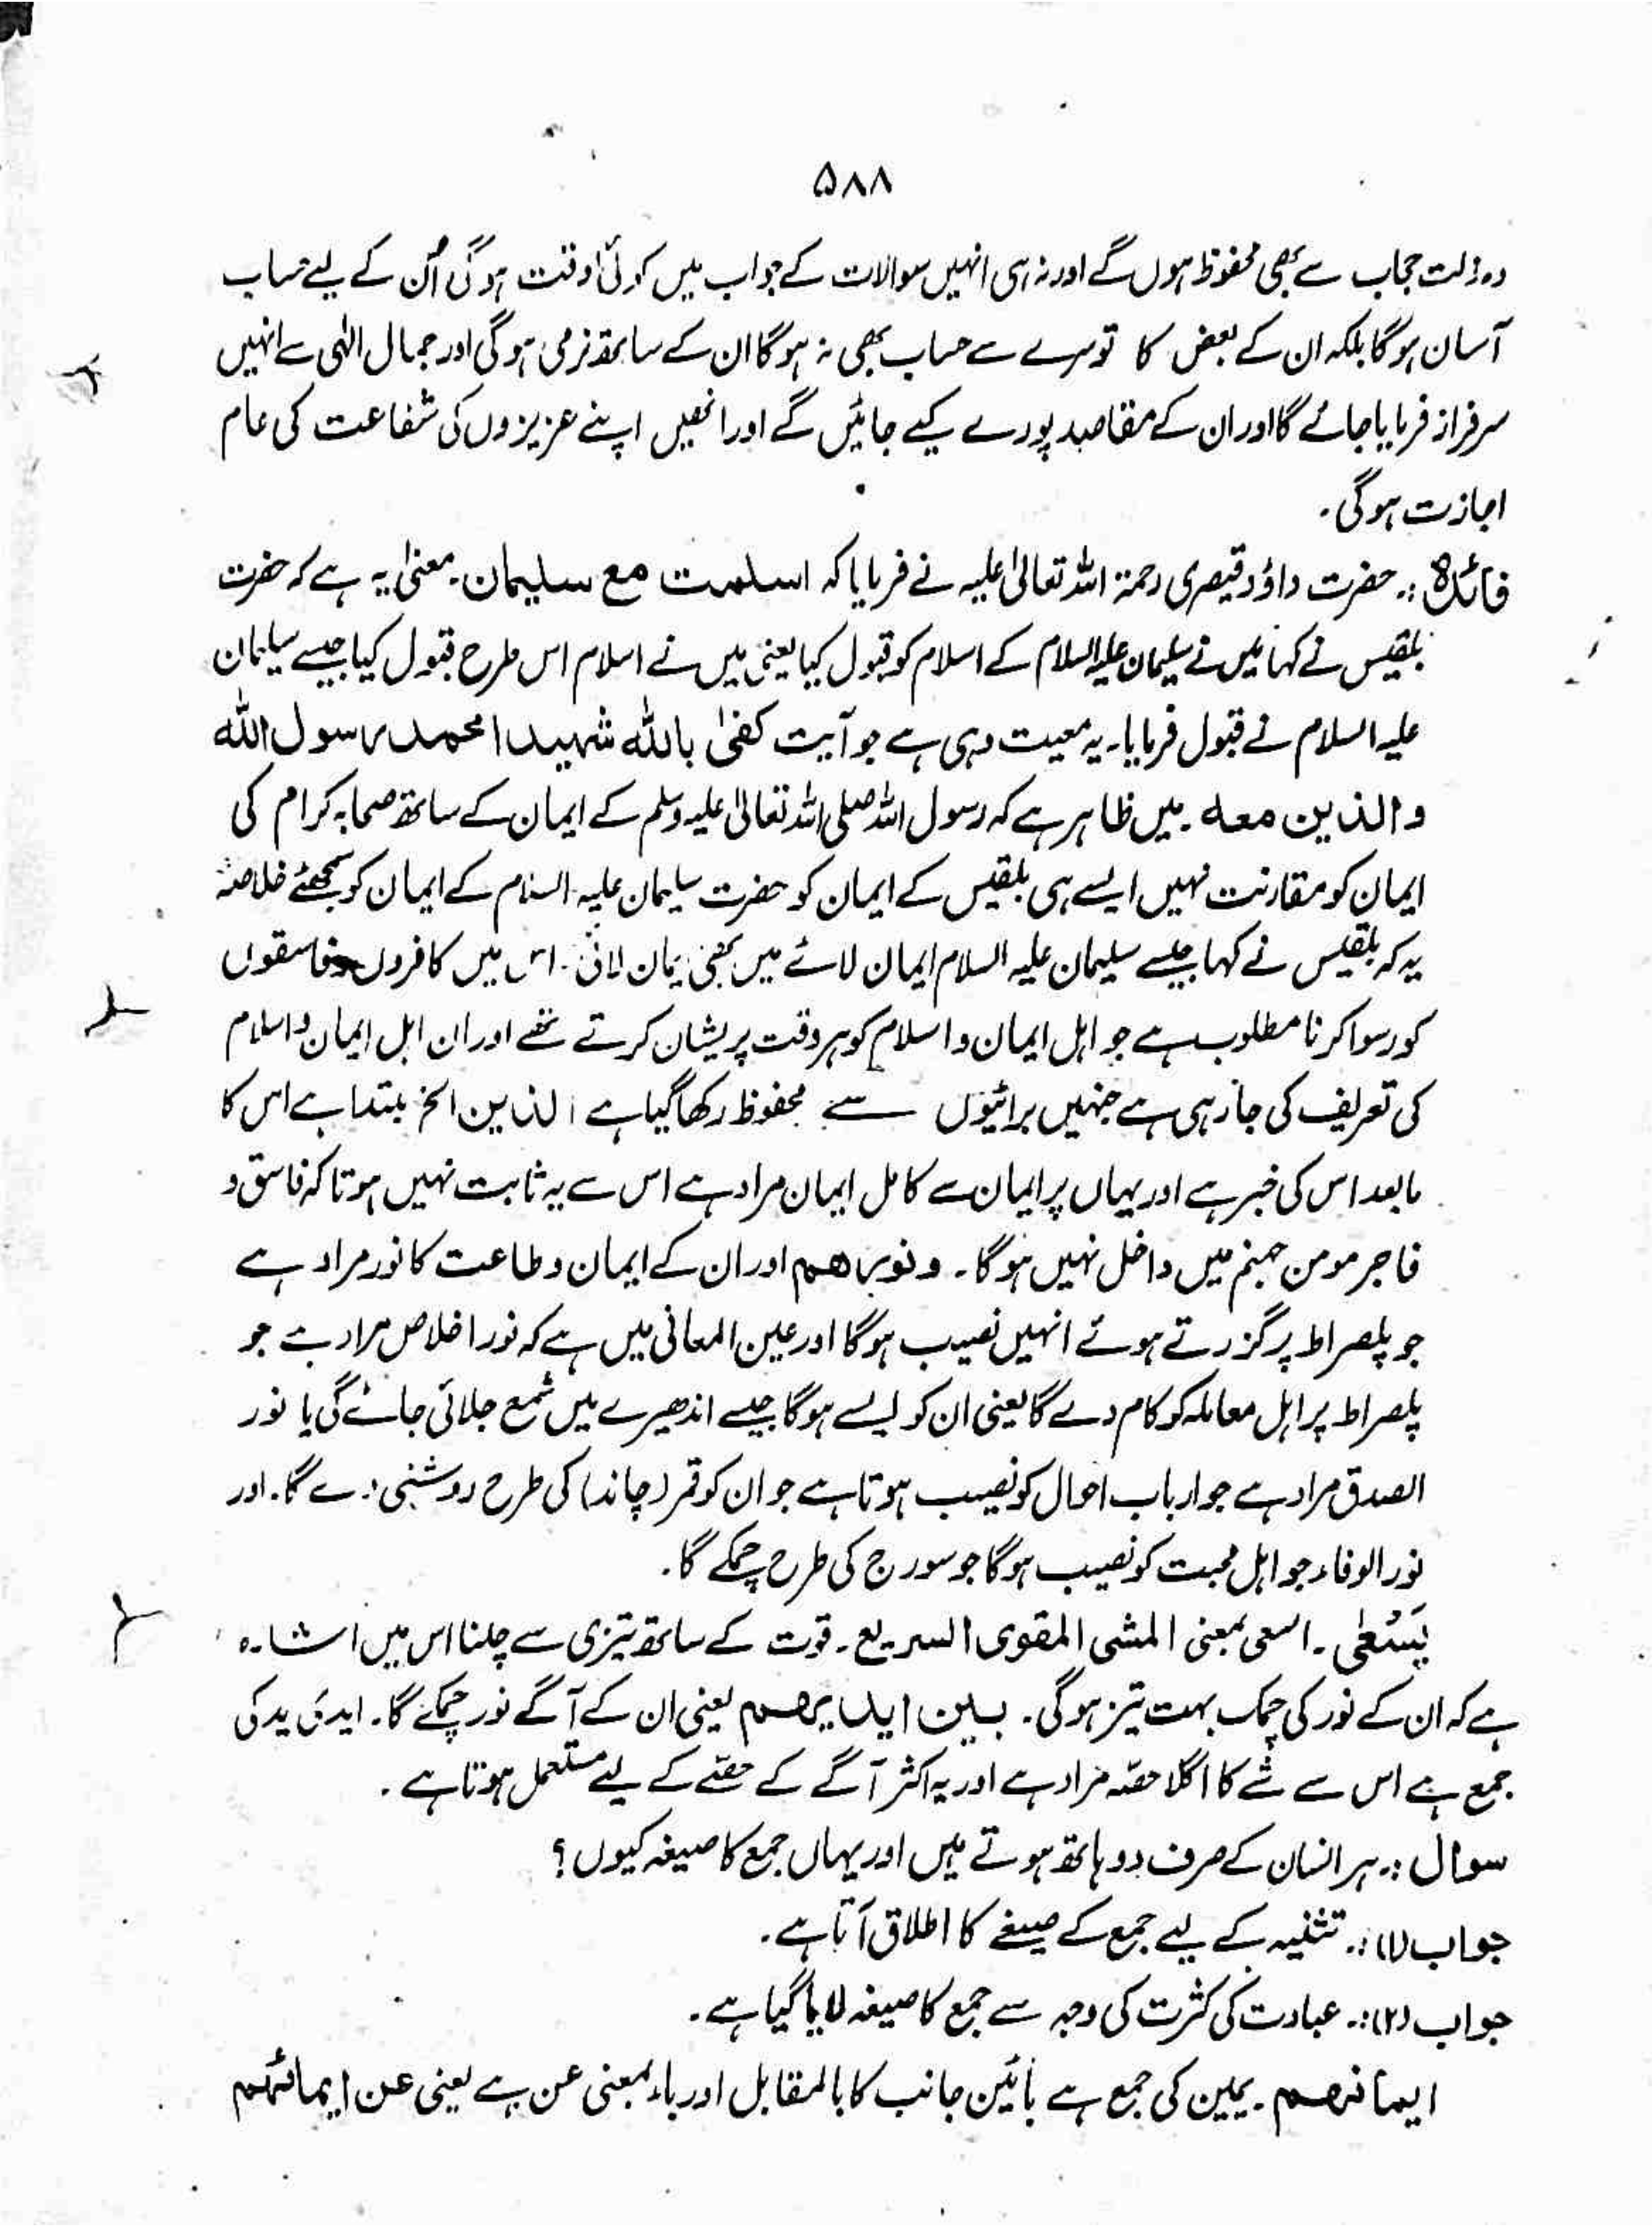 ۵۸۸
وہ ذلت حجاب سے بھی محفوظ ہوں گے اور نہ ہی انہیں سوالات کے جواب میں کوئی دقت ہوگی اُن کے لیے حساب
آسان ہوگا بلکہ ان کے بعض کا تو سرے سے حساب بھی نہ ہوگا ان کے ساتھ نرمی ہوگی اور جمال الٰہی سے انہیں
سرفراز فرمایا جائے گا اور ان کے مقاصد پورے کیے جائیں گے اور انھیں اپنے عزیزوں کی شفاعت کی عام
اجازت ہوگی۔
فائدہ :۔ حضرت داؤد قیصری رحمۃ اللہ تعالیٰ علیہ نے فرمایا کہ اسلمت مع سلیمان۔ معنیٰ یہ ہے کہ حضرت
بلقیس نے کہا میں نے سلیمان علیہ السلام کے اسلام کو قبول کیا یعنی میں نے اسلام اس طرح قبول کیا جیسے سلیمان
علیہ السلام نے قبول فرمایا۔ یہ معیت وہی ہے جو آیت کفیٰ باللہ شھیدا محمد رسول اللہ
والذین معہ۔ میں ظاہر ہے کہ رسول اللہ صلی اللہ تعالیٰ علیہ وسلم کے ایمان کے ساتھ صحابہ کرام کی
ایمان کو مقارنت نہیں ایسے ہی بلقیس کے ایمان کو حضرت سلیمان علیہ السلام کے ایمان کو سمجھئے خلاصہ
یہ کہ بلقیس نے کہا جیسے سلیمان علیہ السلام ایمان لائے میں بھی ایمان لائی۔ اس میں کافروں و فاسقوں
کو رسوا کرنا مطلوب ہے جو اہل ایمان و اسلام کو ہر وقت پریشان کرتے تھے اور ان اہل ایمان و اسلام
کی تعریف کی جا رہی ہے جنہیں برائیوں سے محفوظ رکھا گیا ہے الذین الخ مبتدا ہے اس کا
مابعد اس کی خبر ہے اور یہاں پر ایمان سے کامل ایمان مراد ہے اس سے یہ ثابت نہیں ہوتا کہ فاسق و
فاجر مومن جہنم میں داخل نہیں ہوگا۔ ونورھم اور ان کے ایمان و طاعت کا نور مراد ہے
جو پلصراط پر گزرتے ہوئے انہیں نصیب ہوگا اور عین المعانی میں ہے کہ نور اخلاص مراد ہے جو
پلصراط پر اہل معاملہ کو کام دے گا یعنی ان کو ایسے ہوگا جیسے اندھیرے میں شمع جلائی جائے گی یا نور
الصدق مراد ہے جو ارباب احوال کو نصیب ہوتا ہے جو ان کو قمر (چاند) کی طرح روشنی دے گا۔ اور
نور الوفاء جو اہل محبت کو نصیب ہوگا جو سورج کی طرح چمکے گا۔
یَسْعٰی۔ السعی بمعنی المشی القوی السریع۔ قوت کے ساتھ تیزی سے چلنا اس میں اشارہ
ہے کہ ان کے نور کی چمک بہت تیز ہوگی۔ بین ایدیھم یعنی ان کے آگے نور چمکے گا۔ ایدی ید کی
جمع ہے اس سے شے کا اگلا حصہ مراد ہے اور یہ اکثر آگے کے حصّے کے لیے مستعمل ہوتا ہے۔
سوال :۔ ہر انسان کے صرف دو ہاتھ ہوتے ہیں اور یہاں جمع کا صیغہ کیوں؟
جواب (۱) :۔ تثنیہ کے لیے جمع کے صیغے کا اطلاق آتا ہے۔
جواب (۲) :۔ عبادت کی کثرت کی وجہ سے جمع کا صیغہ لایا گیا ہے۔
ایمانھم۔ یمین کی جمع ہے بائیں جانب کا بالمقابل اور باء بمعنی عن ہے یعنی عن ایمانھم